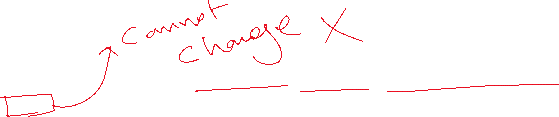 cannot
change X